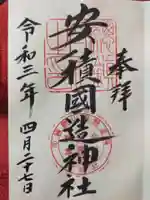 奉拝
安積國造神社
令和三年四月二十七日